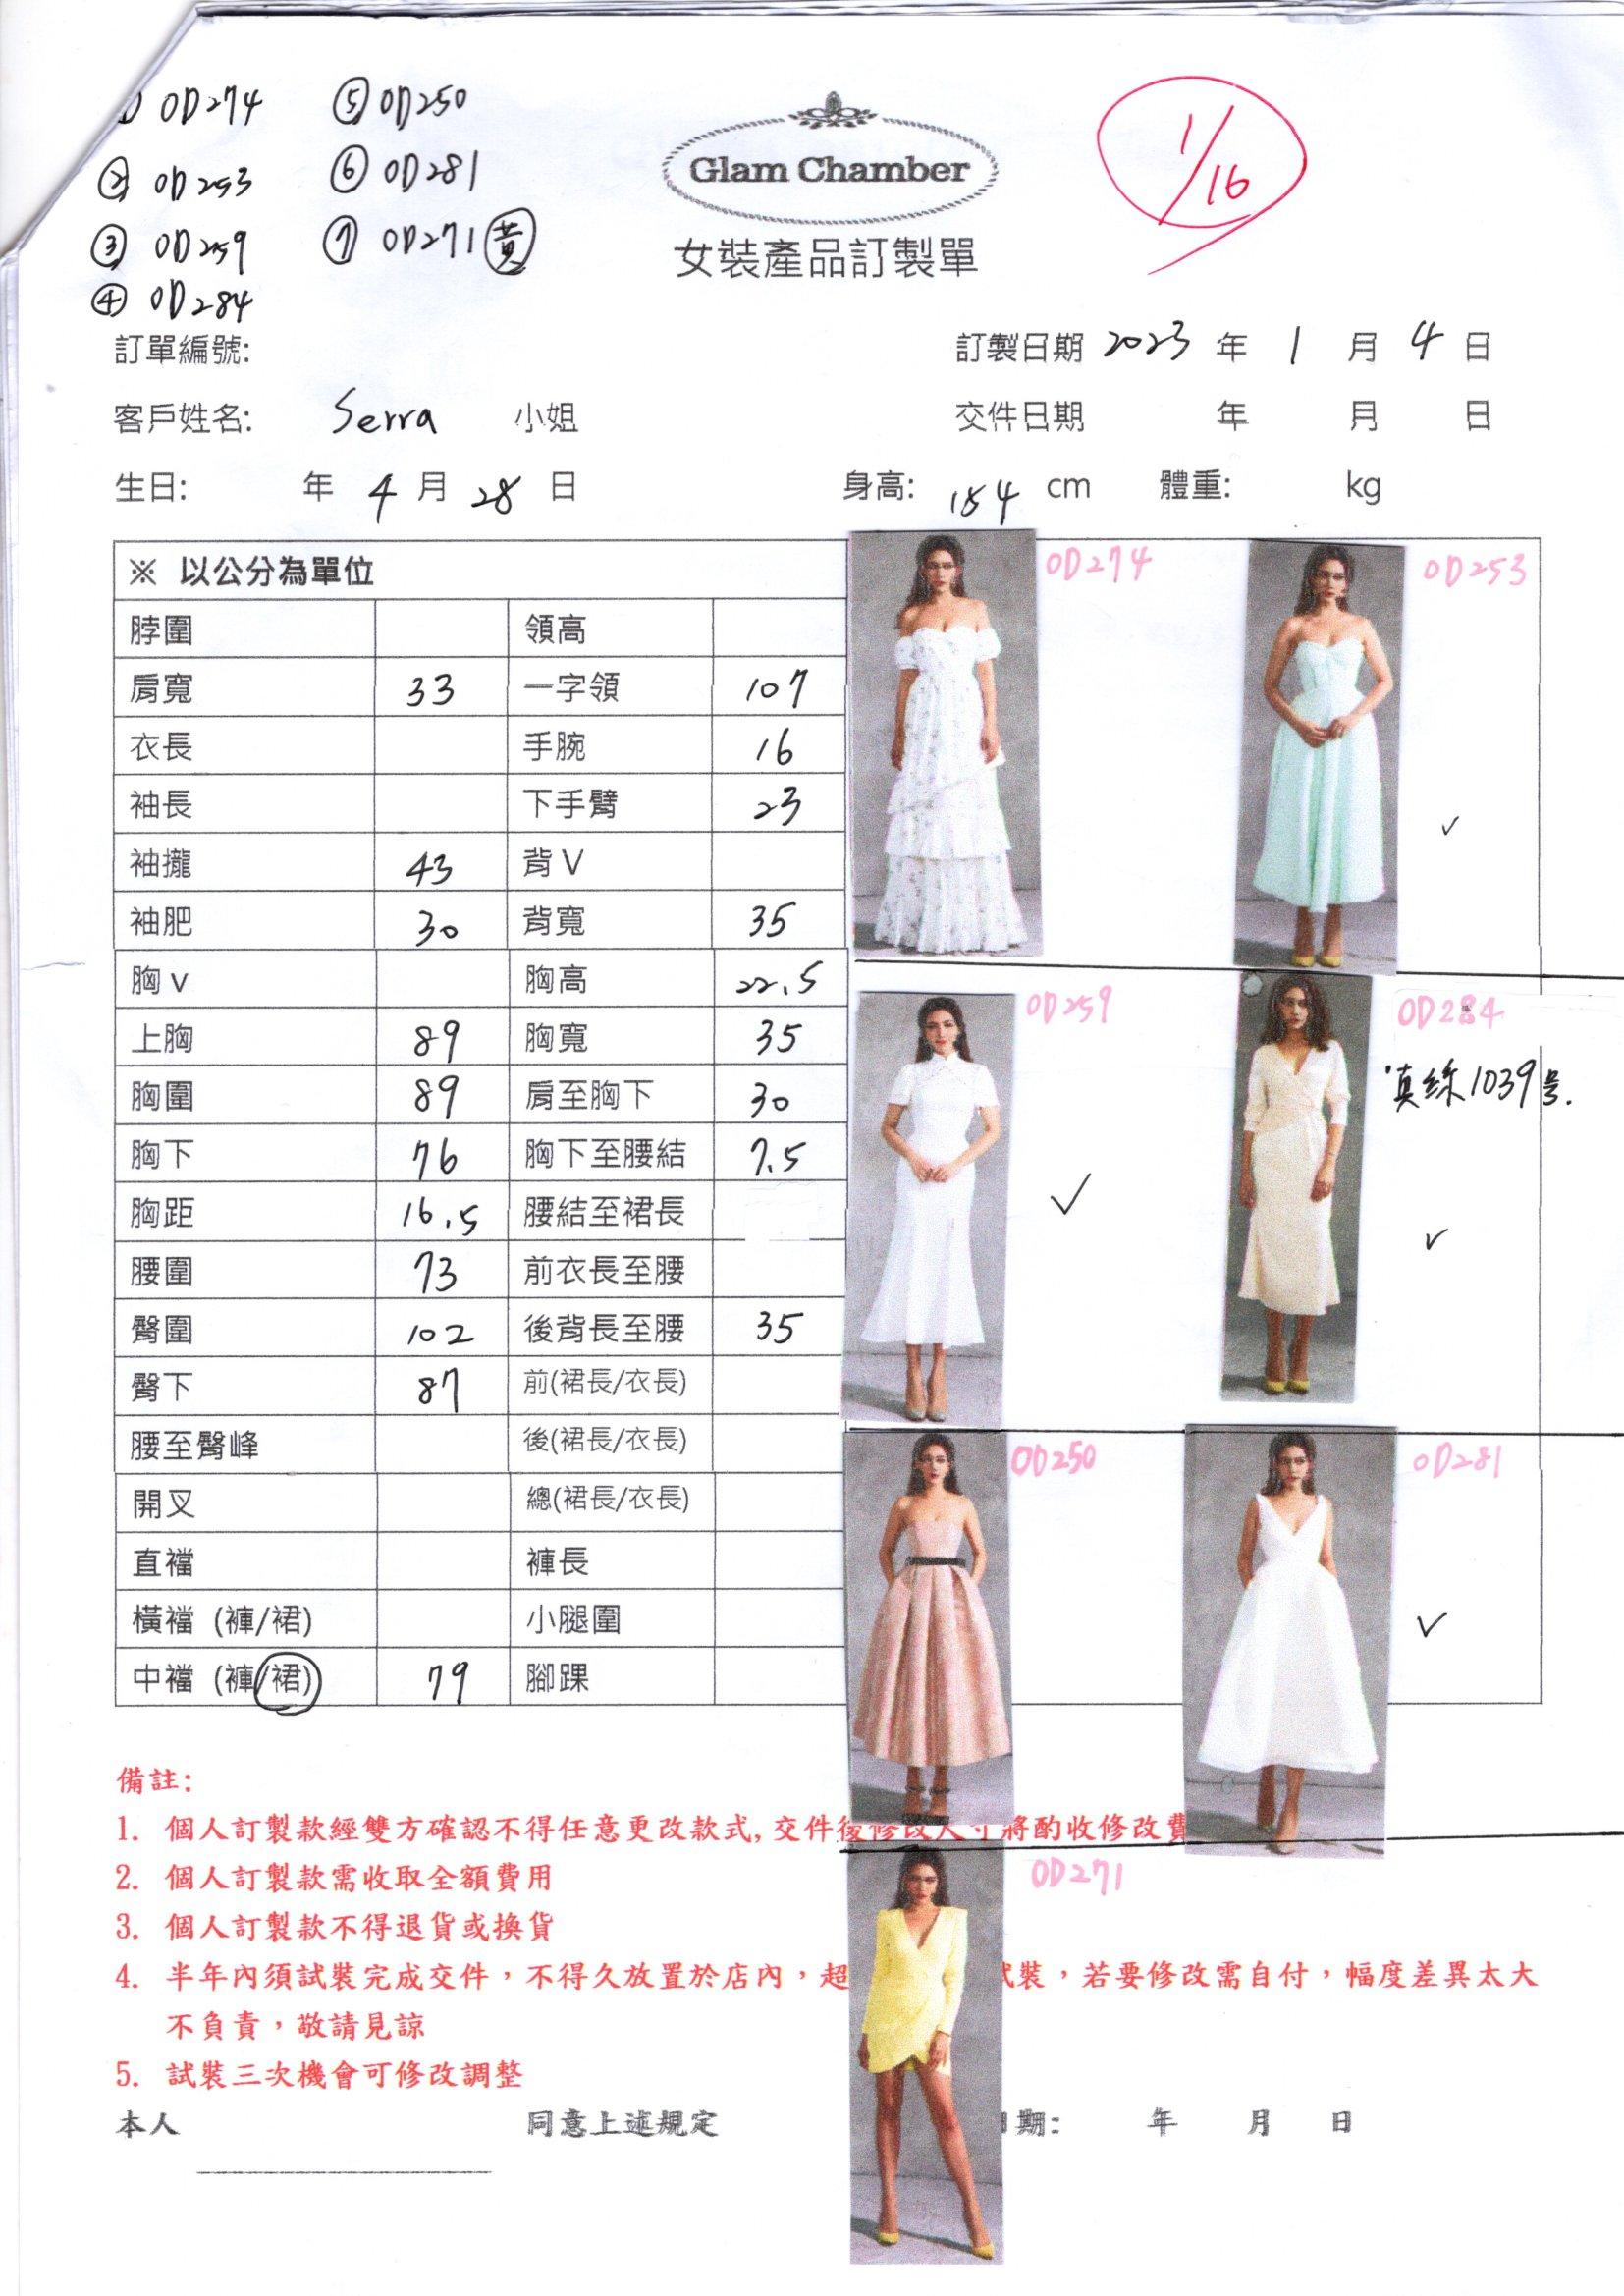 OD274 ⑤ OD250
② OD253 ⑥ OD281
③ OD259 ⑦ OD271 黃
④ OD284
Glam Chamber
女裝產品訂製單
1/16
訂單編號: 訂製日期 2023 年 1 月 4 日
客戶姓名: Serra 小姐 交件日期 年 月 日
生日: 年 4 月 28 日 身高: 154 cm 體重: kg
※ 以公分為單位
脖圍 領高
肩寬 33 一字領 107
衣長 手腕 16
袖長 下手臂 23
袖攏 43 背V
袖肥 30 背寬 35
胸v 胸高 22.5
上胸 89 胸寬 35
胸圍 89 肩至胸下 30
胸下 76 胸下至腰結 7.5
胸距 16.5 腰結至裙長
腰圍 73 前衣長至腰
臀圍 102 後背長至腰 35
臀下 87 前(裙長/衣長)
腰至臀峰 後(裙長/衣長)
開叉 總(裙長/衣長)
直襠 褲長
橫襠 (褲/裙) 小腿圍
中襠 (褲/裙) 79 腳踝
OD274 OD253
OD259 OD284
真絲1039号.
OD250 OD281
OD271
備註:
1. 個人訂製款經雙方確認不得任意更改款式,交件後修改尺寸將酌收修改費
2. 個人訂製款需收取全額費用
3. 個人訂製款不得退貨或換貨
4. 半年內須試裝完成交件，不得久放置於店內，超 試裝，若要修改需自付，幅度差異太大
不負責，敬請見諒
5. 試裝三次機會可修改調整
本人 同意上述規定 日期: 年 月 日